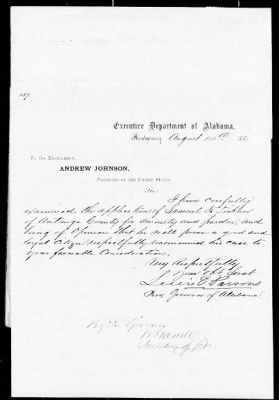 Executive Department of Alabama,
Montgomery August 14th 186
To His Excellency,
ANDREW JOHNSON,
President of the United States,
Sir:
I have carefully
examined the application of Samuel
of Autauga County for Amnesty and pardon, and
being of Opinion that he will prove a good and
loyal Citizen respectfully recommend his case to
your favorable Consideration.
Very Respectfully
Your Obt Servt
Lewis E Parsons
Prov. Governor of Alabama
By the Governor
Secretary of